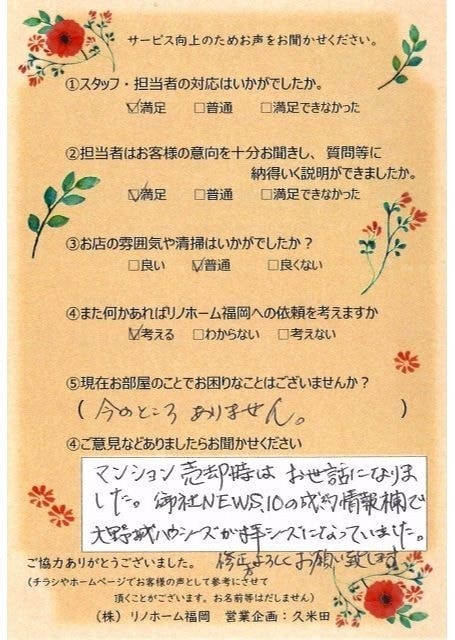 サービス向上のためお声をお聞かせください。
①スタッフ・担当者の対応はいかがでしたか。
☑満足 □普通 □満足できなかった
②担当者はお客様の意向を十分お聞きし、質問等に
納得いく説明ができましたか。
☑満足 □普通 □満足できなかった
③お店の雰囲気や清掃はいかがでしたか？
□良い ☑普通 □良くない
④また何かあればリノホーム福岡への依頼を考えますか
☑考える □わからない □考えない
⑤現在お部屋のことでお困りなことはございませんか？
（ 今のところありません。 ）
④ご意見などありましたらお聞かせください
マンション売却時は お世話になりま
した。御社NEWS.10の成約情報欄で
大野城ハウシーズが拝シーズになっていました。
修正方よろしくお願い致します
ご協力ありがとうございました。
（チラシやホームページでお客様の声として参考にさせて
頂くことがございます。お名前等はだしません）
（株）リノホーム福岡 営業企画：久米田